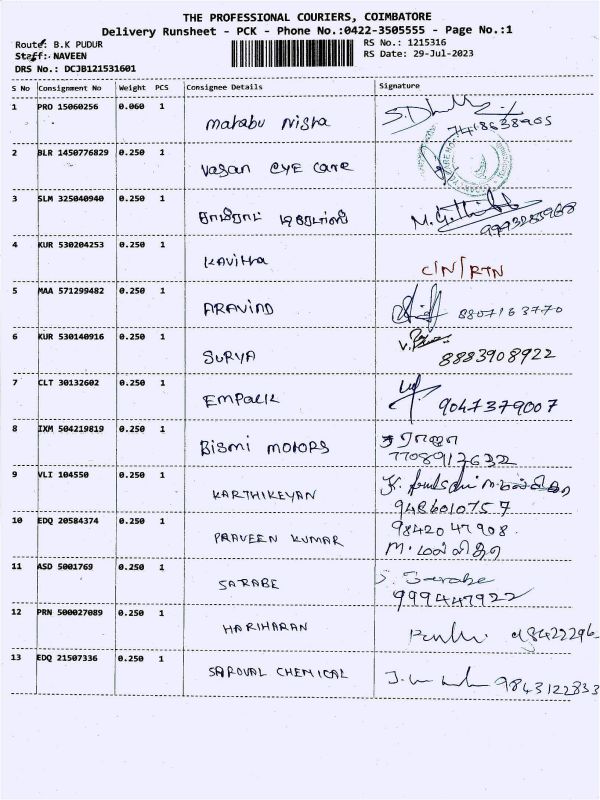 THE PROFESSIONAL COURIERS, COIMBATORE
Delivery Runsheet - PCK - Phone No.:0422-3505555 - Page No.:1
Route: B.K PUDUR
RS No.: 1215316
Staff: NAVEEN
RS Date: 29-Jul-2023
DRS No.: DCJB121531601
S No Consignment No Weight PCS Consignee Details Signature
1 PRO 15060256 0.060 1 Mahabu Nisha
7418638905
2 BLR 1450776829 0.250 1 Vasan EYE Care
3 SLM 325040940 0.250 1
4 KUR 530204253 0.250 1 Kavitha C/N/RTN
5 MAA 571299482 0.250 1 ARAVIND 8807163770
6 KUR 530140916 0.250 1 SURYA 8883908922
7 CLT 30132602 0.250 1 EMPACK 9047379007
8 IXM 504219819 0.250 1 Bismi MOTORS
7708913632
9 VLI 104550 0.250 1 KARTHIKEYAN
9486010757
10 EDQ 20584374 0.250 1 PRAVEEN KUMAR 9842047908
M. மல்லிகா
11 ASD 5001769 0.250 1 SARABE S. Sarabe
999447922
12 PRN 500027089 0.250 1 HARIHARAN
13 EDQ 21507336 0.250 1 SAROVAL CHEMICAL 9843122833